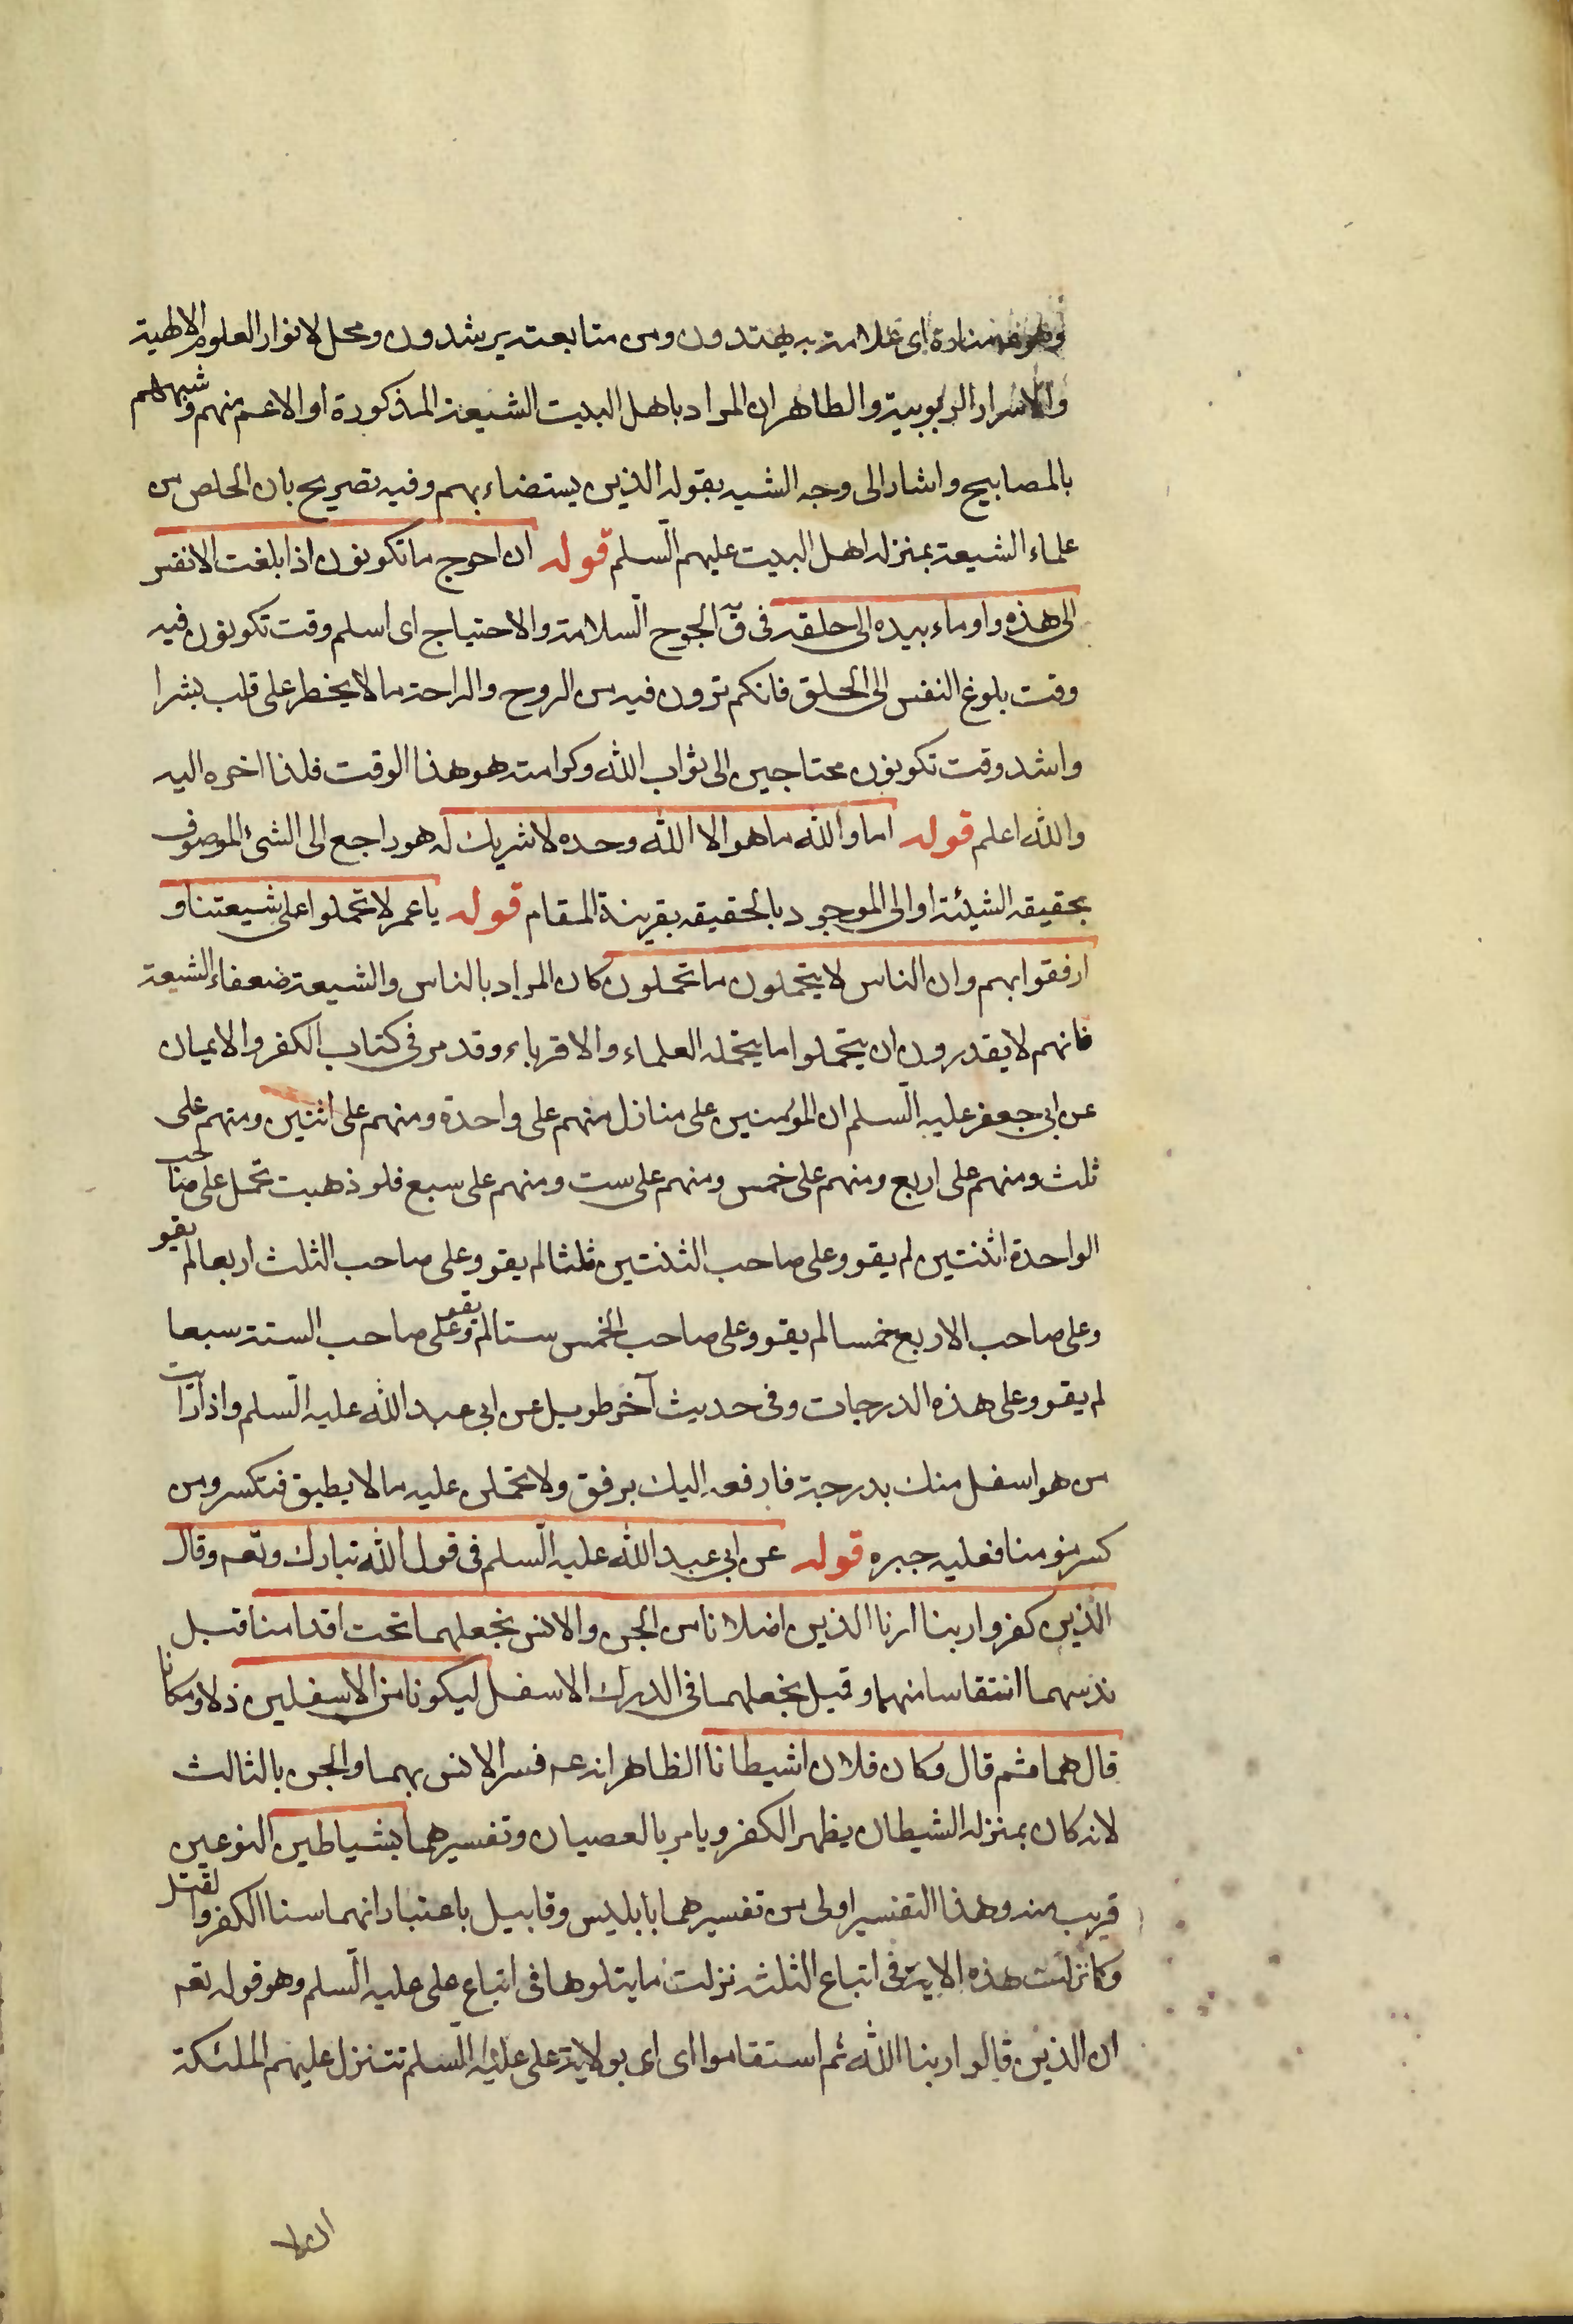 وهو فيهم منارة اى علامة به يهتدون ومن متابعته يرشدون ومحل لانوار العلوم الالهية
والاسرار الربوبية والظاهر ان المراد باهل البيت الشيعة المذكورة او الاعم منهم وشبههم
بالمصابيح واشار الى وجه الشبه بقوله الذين يستضاء بهم وفيه تصريح بان الخلص من
علماء الشيعة بمنزله اهل البيت عليهم السّلم قوله ان احوج ما تكونون اذا بلغت الانفس
الى هذه واوماء بيده الى حلقه فى ق الجوح السّلامة والاحتياج اى اسلم وقت تكونون فيه
وقت بلوغ النفس الى الحلق فانكم ترون فيه من الروح والراحة ما لا يخطر على قلب بشر ا
واشد وقت تكونون محتاجين الى ثواب الله وكرامته هو هذا الوقت فلذا اخره اليه
والله اعلم قوله اما والله ما هو الا الله وحده لا شريك له هو راجع الى الشئ الموصوف
بحقيقه الشيئة او الى الموجود بالحقيقه بقرينة المقام قوله يا عمر لا تحملوا على شيعتنا و
ارفقوا بهم وان الناس لا يتحملون ما تحملون كان المراد بالناس والشيعة ضعفاء الشيعة
فانهم لا يقدرون ان يتحملوا ما يتحمله العلماء والاقرباء وقد مر فى كتاب الكفر والايمان
عن ابى جعفر عليه السّلم ان المؤمنين على منازل منهم على واحدة ومنهم على اثنين ومنهم على
ثلث ومنهم على اربع ومنهم على خمس ومنهم على ست ومنهم على سبع فلو ذهبت تحمل على صاحب
الواحدة اثنتين لم يقو وعلى صاحب الثنتين ثلثا لم يقو وعلى صاحب الثلث اربعا لم يقو
وعلى صاحب الاربع خمسا لم يقو وعلى صاحب الخمس ستا لم يقو وعلى صاحب الستة سبعا
لم يقو وعلى هذه الدرجات وفى حديث آخر طويل عن ابى عبد الله عليه السّلم واذا رايت
من هو اسفل منك بدرجة فارفعه اليك برفق ولا تحملن عليه ما لا يطيق فتكسر ومن
كسر مؤمنا فعليه جبره قوله عن ابى عبد الله عليه السّلم فى قول الله تبارك وتعه وقال
الذين كفروا ربنا ارنا الذين اضلانا من الجن والانس نجعلهما تحت اقدامنا قيل
ندسهما انتقاما منهما وقيل نجعلهما فى الدرك الاسفل ليكونا من الاسفلين ذلا ومكانا
قال هما ثم قال وكان فلان شيطانا الظاهر انه عه فسر الانس بهما والجن بالثالث
لانه كان بمنزله الشيطان يظهر الكفر ويامر بالعصيان وتفسيرهما بشياطين النوعين
قريب منه وهذا التفسير اولى من تفسيرهما بابليس وقابيل باعتبار انهما سنا الكفر والقتل
وكما نزلت هذه الاية فى اتباع الثلثه نزلت ما يتلوها فى اتباع على عليه السّلم وهو قوله تعه
ان الذين قالوا ربنا الله ثم استقاموا اى اى بولاية على عليه السّلم تتنزل عليهم الملئكة
ان لا